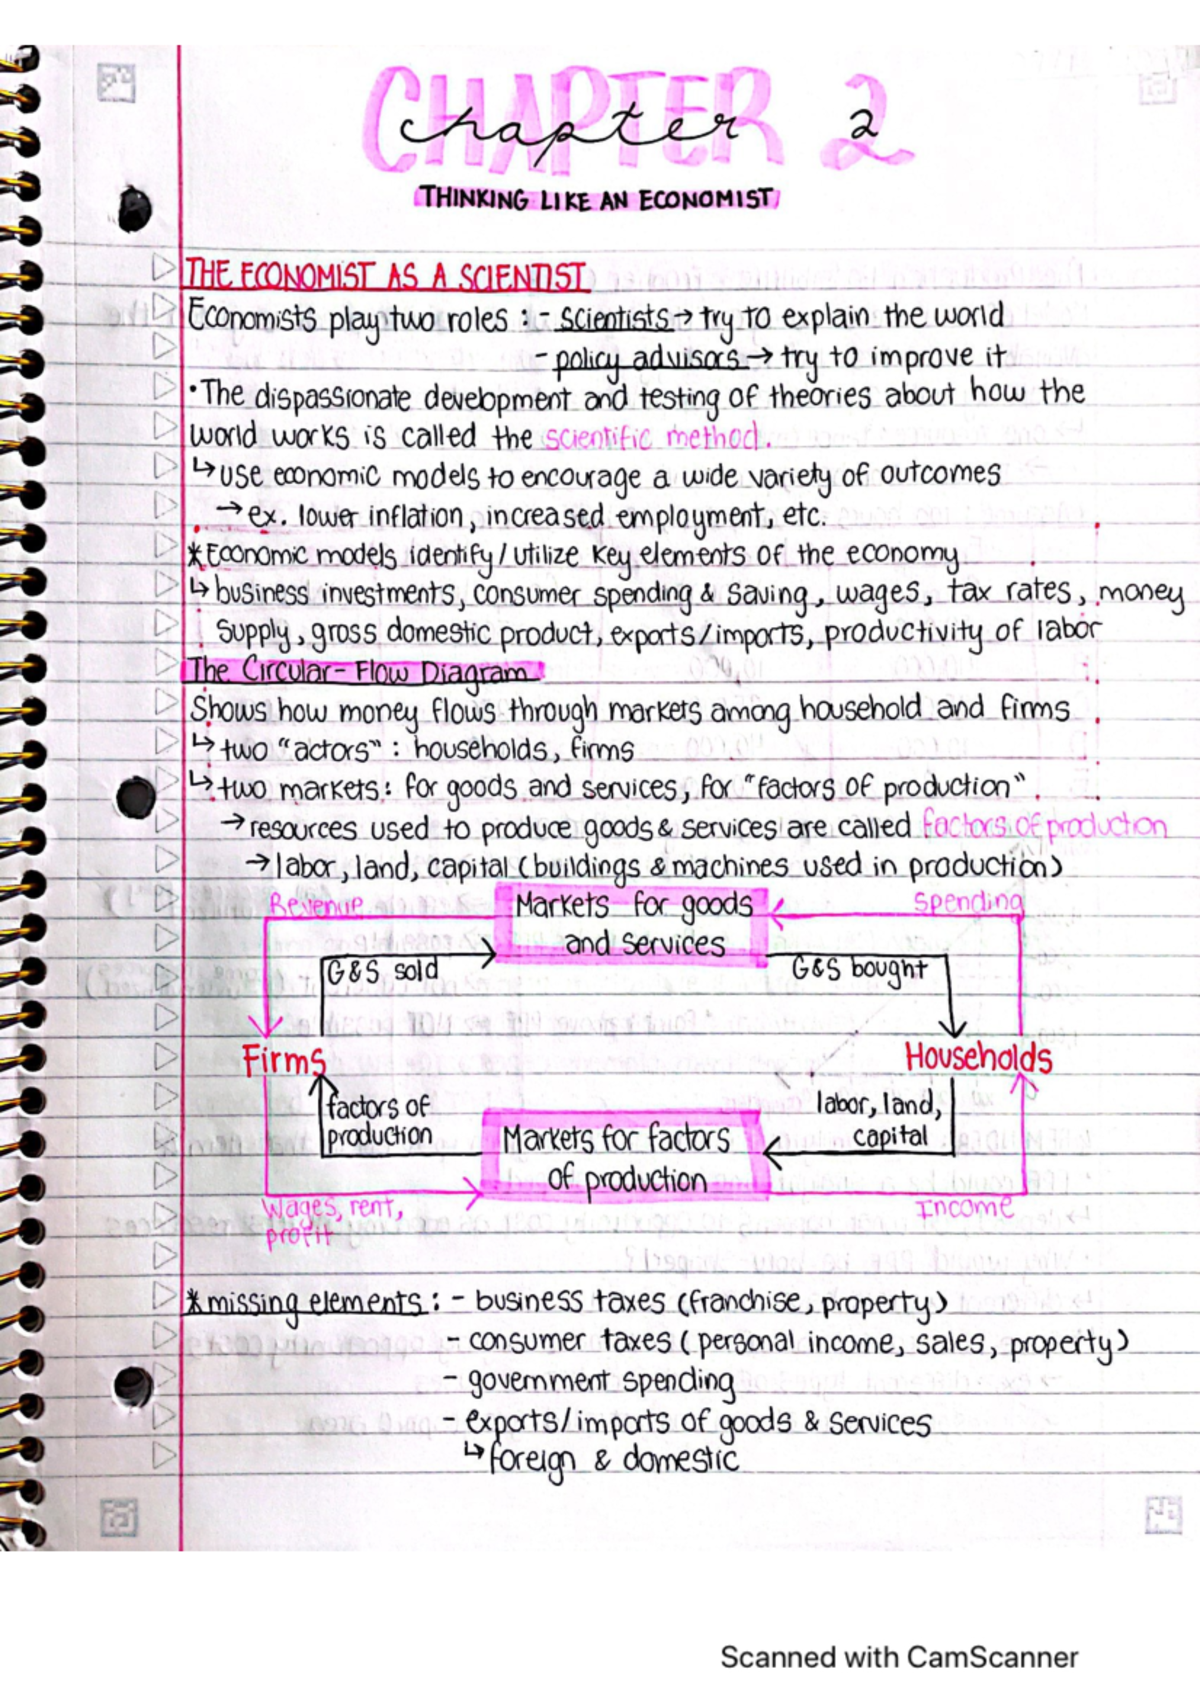 CHAPTER 2
chapter 2
THINKING LIKE AN ECONOMIST
THE ECONOMIST AS A SCIENTIST
Economists play two roles : - scientists → try to explain the world
- policy advisors → try to improve it
• The dispassionate development and testing of theories about how the
world works is called the scientific method.
↳ use economic models to encourage a wide variety of outcomes
→ ex. lower inflation, increased employment, etc.
*Economic models identify/utilize key elements of the economy
↳ business investments, consumer spending & saving, wages, tax rates, money
supply, gross domestic product, exports/imports, productivity of labor
The Circular-Flow Diagram
Shows how money flows through markets among household and firms
↳ two "actors" : households, firms
↳ two markets: for goods and services, for "factors of production"
→ resources used to produce goods & services are called factors of production
→ labor, land, capital (buildings & machines used in production)
Revenue
Markets for goods
and services
Spending
G&S sold
G&S bought
Firms
Households
factors of
production
labor, land,
capital
Markets for factors
of production
Wages, rent,
profit
Income
*missing elements : - business taxes (franchise, property)
- consumer taxes (personal income, sales, property)
- government spending
- exports/imports of goods & services
↳ foreign & domestic
Scanned with CamScanner